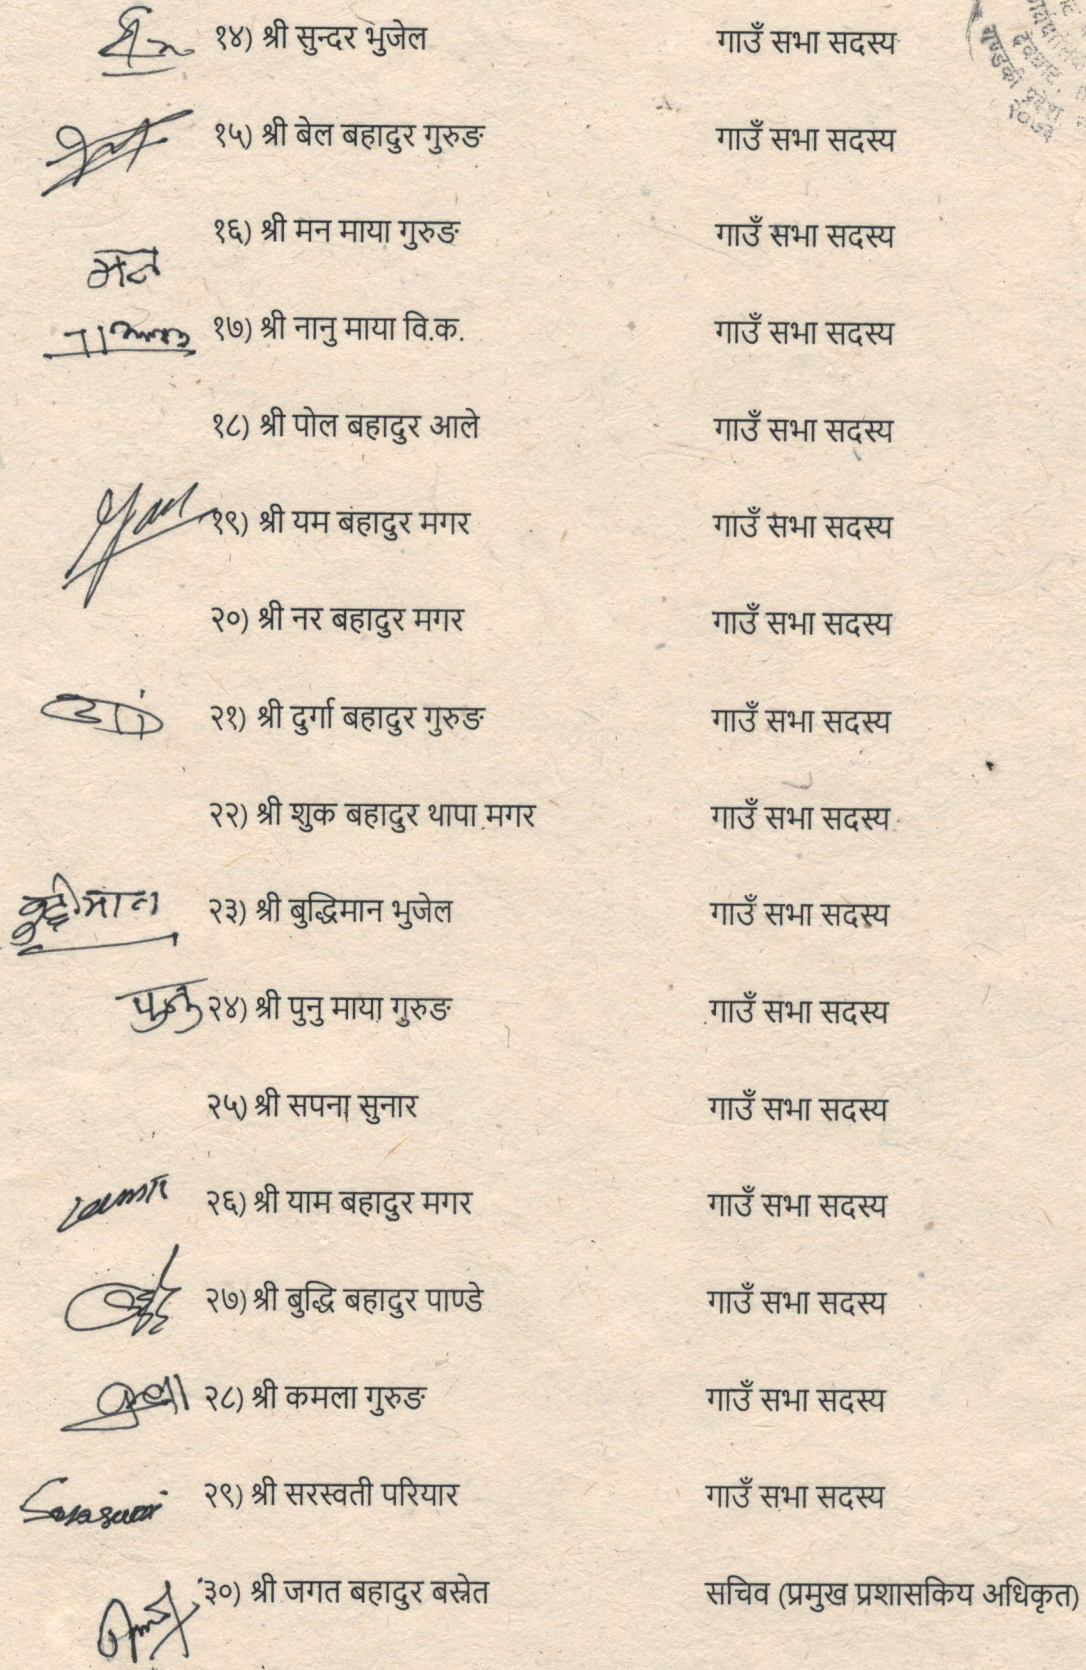 १४) श्री सुन्दर भुजेल गाउँ सभा सदस्य
१५) श्री बेल बहादुर गुरुङ गाउँ सभा सदस्य
१६) श्री मन माया गुरुङ गाउँ सभा सदस्य
मन
१७) श्री नानु माया वि.क. गाउँ सभा सदस्य
१८) श्री पोल बहादुर आले गाउँ सभा सदस्य
१९) श्री यम बहादुर मगर गाउँ सभा सदस्य
२०) श्री नर बहादुर मगर गाउँ सभा सदस्य
२१) श्री दुर्गा बहादुर गुरुङ गाउँ सभा सदस्य
२२) श्री शुक बहादुर थापा मगर गाउँ सभा सदस्य
बुद्दीमान २३) श्री बुद्धिमान भुजेल गाउँ सभा सदस्य
पुनु २४) श्री पुनु माया गुरुङ गाउँ सभा सदस्य
२५) श्री सपना सुनार गाउँ सभा सदस्य
२६) श्री याम बहादुर मगर गाउँ सभा सदस्य
२७) श्री बुद्धि बहादुर पाण्डे गाउँ सभा सदस्य
२८) श्री कमला गुरुङ गाउँ सभा सदस्य
२९) श्री सरस्वती परियार गाउँ सभा सदस्य
३०) श्री जगत बहादुर बस्नेत सचिव (प्रमुख प्रशासकिय अधिकृत)